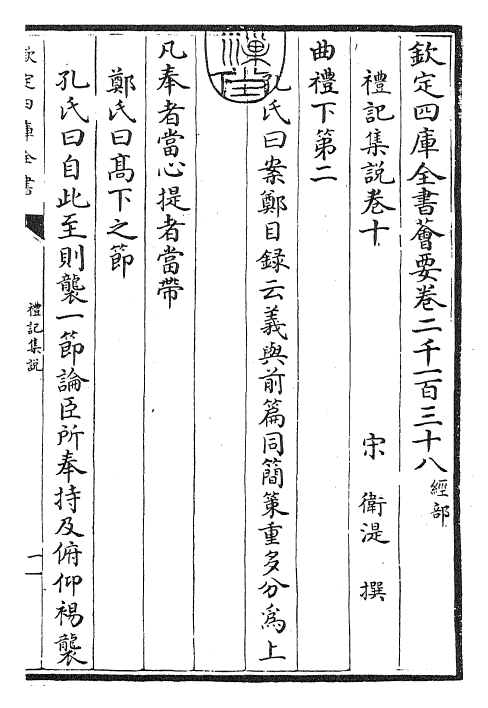 欽定四庫全書薈要卷二千一百三十八經部
禮記集說卷十
宋 衛湜 撰
曲禮下第二
孔氏曰案鄭目錄云義與前篇同簡策重多分爲上
凡奉者當心提者當帶
鄭氏曰髙下之節
孔氏曰自此至則襲一節論臣所奉持及俯仰裼襲
欽定四庫全書
禮記集說
一